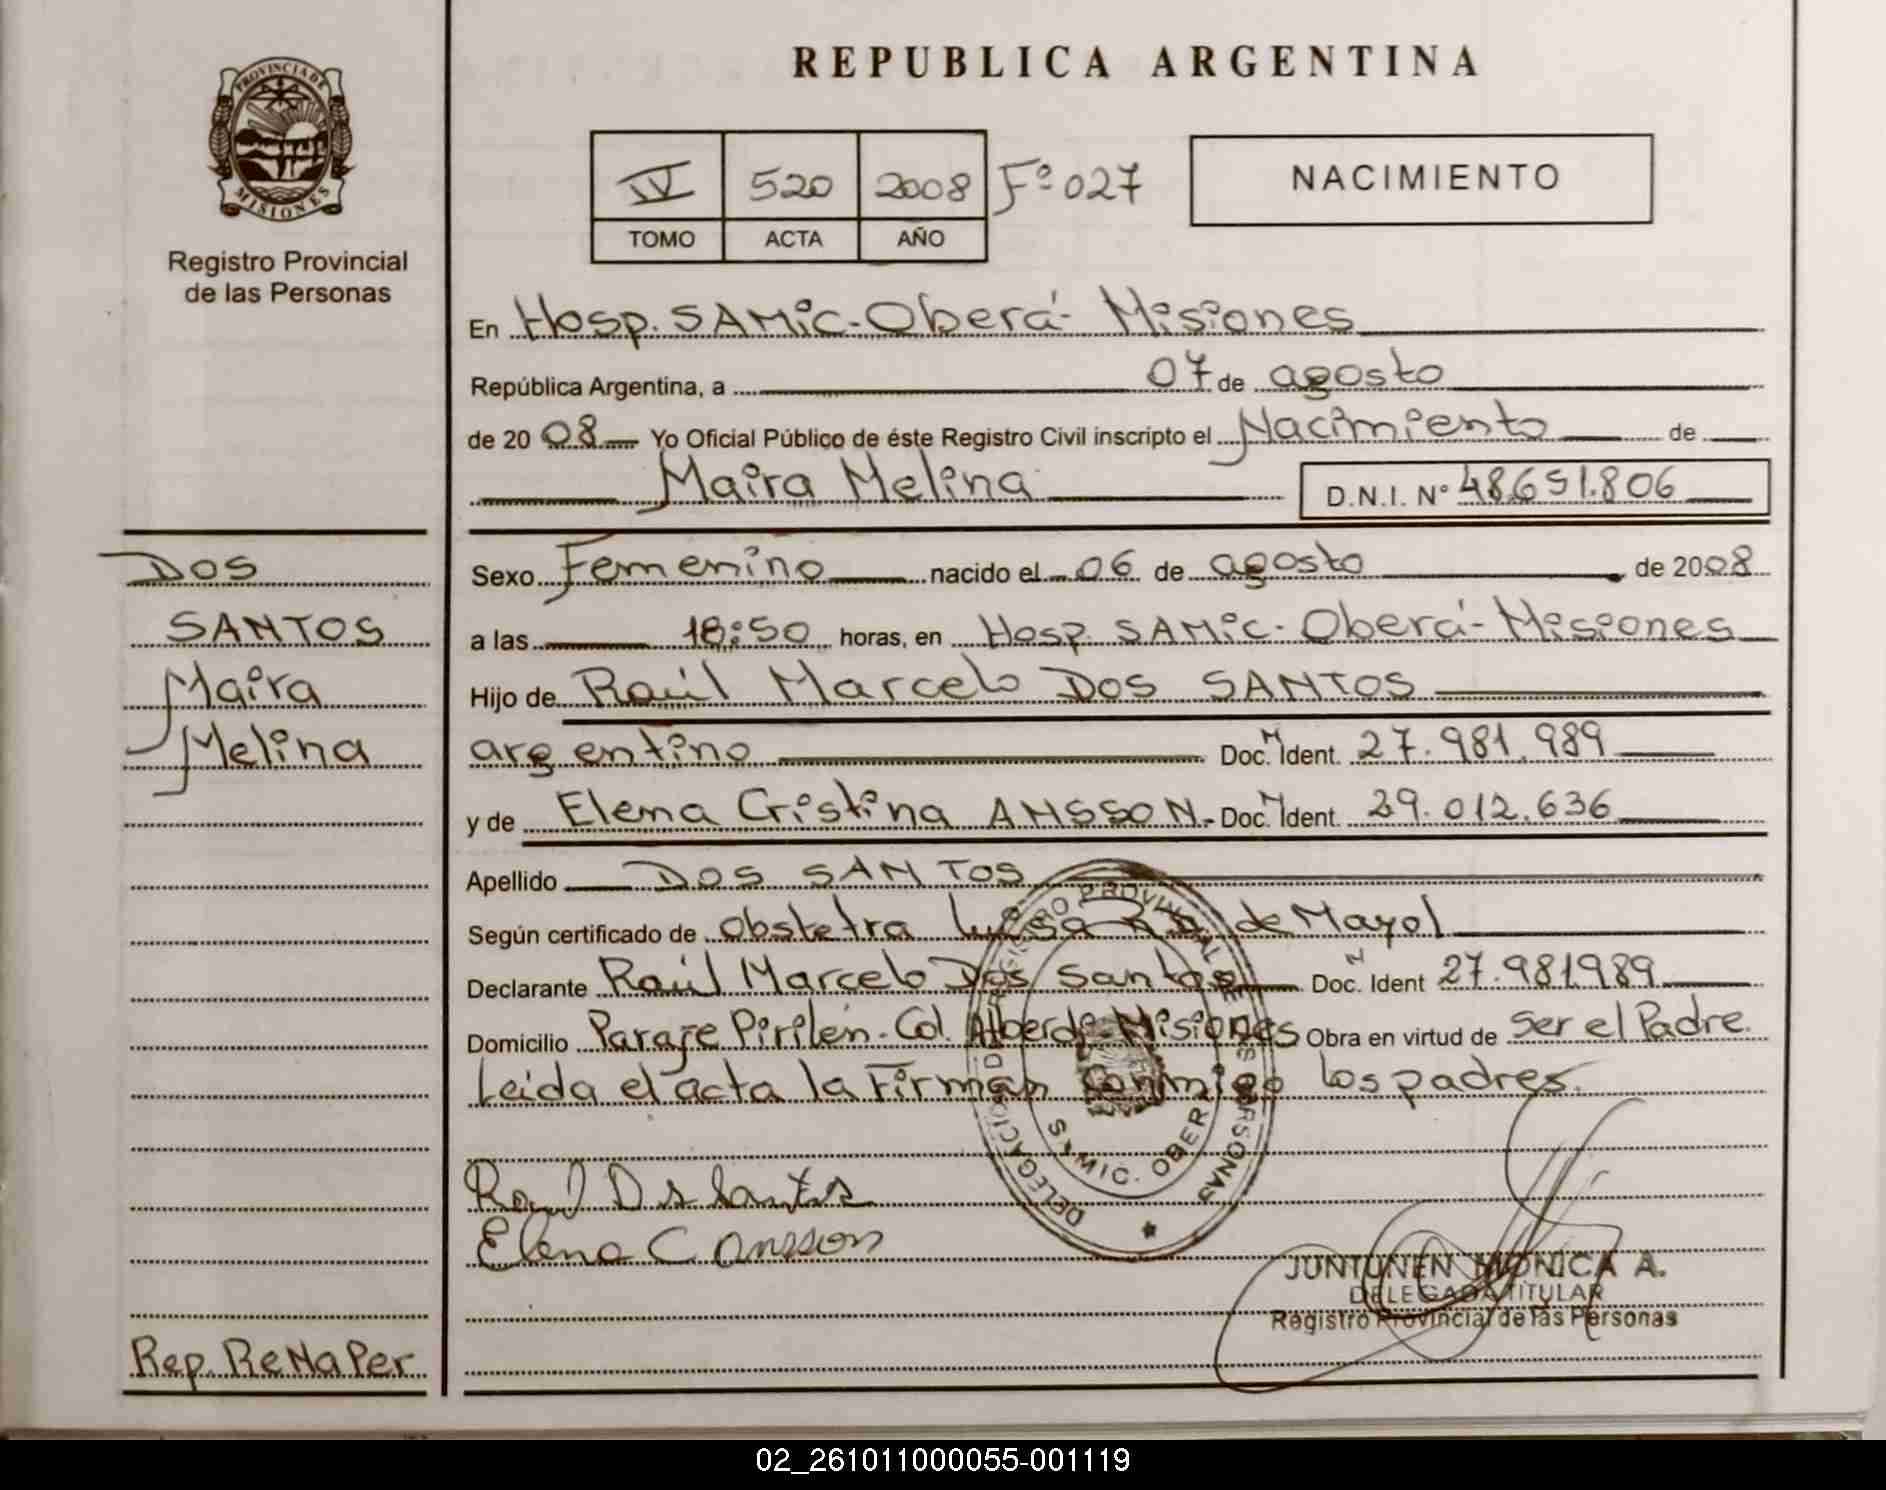 REPUBLICA ARGENTINA
PROVINCIA DE
MISIONES
Registro Provincial
de las Personas
IV 520 2008 Fº 027
TOMO ACTA AÑO
NACIMIENTO
En Hosp. SAMic - Oberá - Misiones
República Argentina, a 07 de agosto
de 2008 Yo Oficial Público de éste Registro Civil inscripto el Nacimiento de
Maira Melina D.N.I. Nº 48.651.806
DOS
SANTOS
Maira
Melina
Sexo Femenino nacido el 06 de agosto de 2008
a las 18:50 horas, en Hosp. SAMic - Oberá - Misiones
Hijo de Raúl Marcelo DOS SANTOS
argentino Doc. N Ident. 27.981.989
y de Elena Cristina ANSSON - Doc. N Ident. 29.012.636
Apellido DOS SANTOS
Según certificado de obstetra Luisa de Mayol
Declarante Raúl Marcelo Dos Santos Doc. N Ident 27.981989
Domicilio Paraje Pirilén - Col. Alberdi - Misiones Obra en virtud de ser el Padre.
Leida el acta la firman conmigo los padres.
Raul D s Santos
Elena C Ansson
DELEGACION REGISTRO PROVINCIAL DE LAS PERSONAS
S.A.MIC. OBERA
JUNTUNEN MONICA A.
DELEGADA TITULAR
Registro Provincial de las Personas
Rep. ReNaPer
02_261011000055-001119